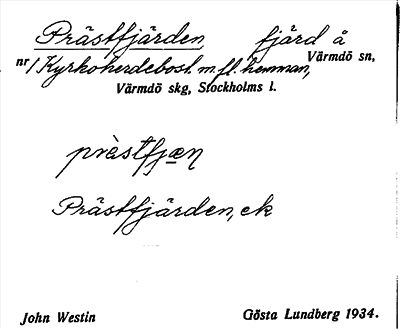 Prästfjärden fjärd å
nr 1 Kyrkoherdebost. m. fl. hemman, Värmdö sn,
Värmdö skg, Stockholms l.
prästfjæn
Prästfjärden, ek
John Westin Gösta Lundberg 1934.